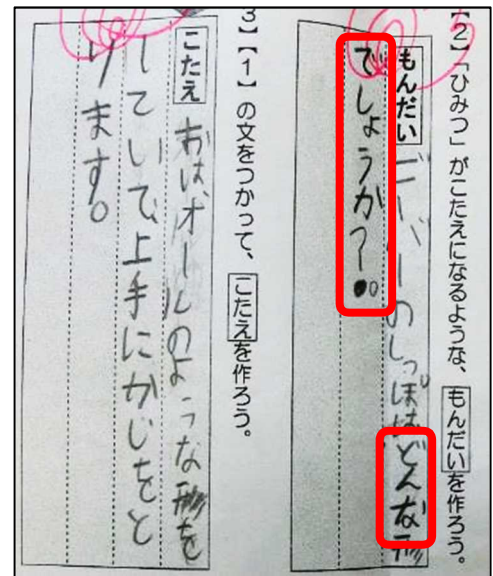 【2】「ひみつ」がこたえになるような、もんだいを作ろう。
もんだい ビーバーのしっぽはどんな形
でしょうか?。
3】【1】の文をつかって、こたえを作ろう。
こたえ おは、オールのような形を
していて、上手にかじをと
ります。